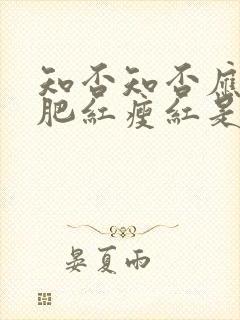 知否知否应
肥红瘦红是
晏夏雨